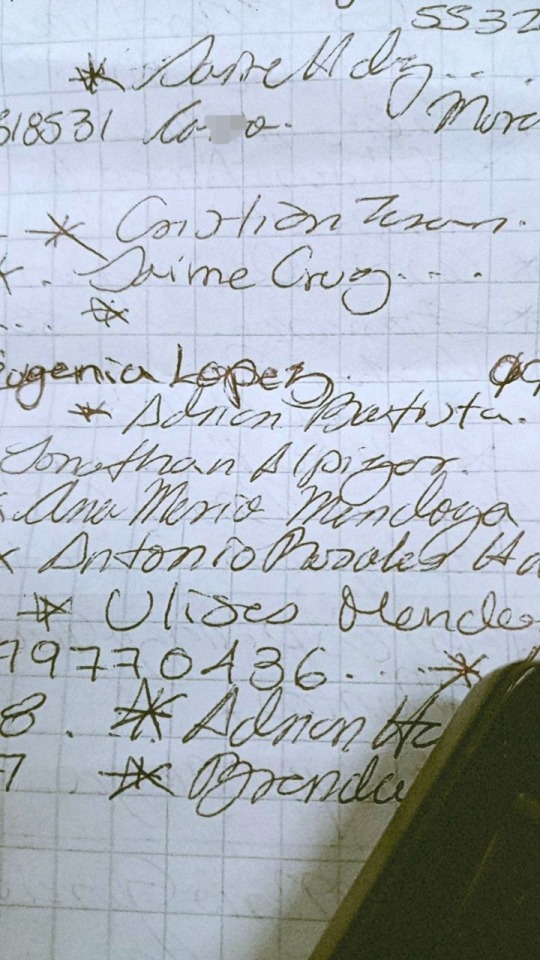 5532
* Jaime Hdz...
318531
* Cristian
* . Jaime Cruz....
.... *
Eugenia Lopez.
* Adrian Bautista.
Jonathan Alpizar.
Ana Maria Mendoza
* Antonio Rosales
* Ulises Mende
79770436.... *
8. * Adrian
7 * Brenda